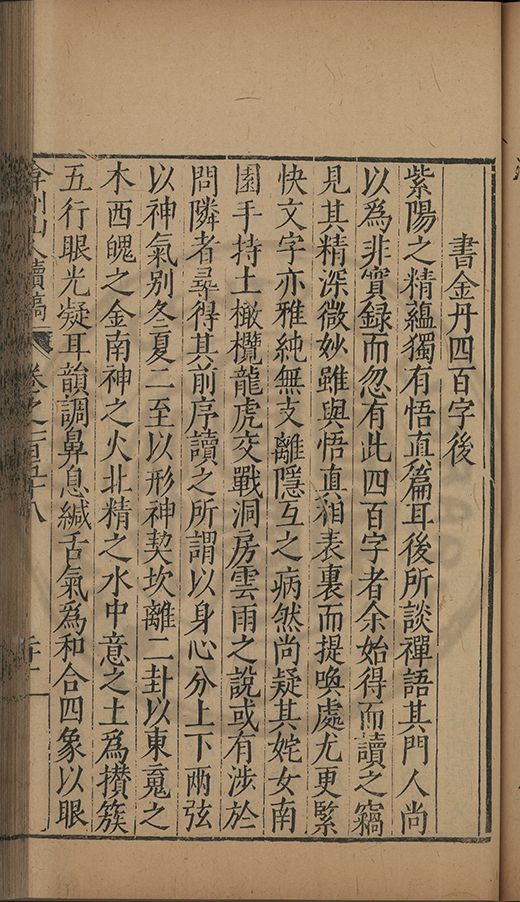 書金丹四百字後
紫陽之精蘊獨有悟真篇耳後所談禪語其門人尚
以爲非實録而忽有此四百字者余始得而讀之竊
見其精深微妙雖與悟真相表裏而提喚處尤更緊
快文字亦雅純無支離隱互之病然尚疑其姹女南
園手持土橄欖龍虎交戰洞房雲雨之說或有涉於
問隣者尋得其前序讀之所謂以身心分上下兩弦
以神氣别冬夏二至以形神契坎離二卦以東䰟之
木西魄之金南神之火北精之水中意之土爲攅簇
五行眼光凝耳韻調鼻息緘舌氣爲和合四象以眼
弇州山人續稿 卷之一百五十八